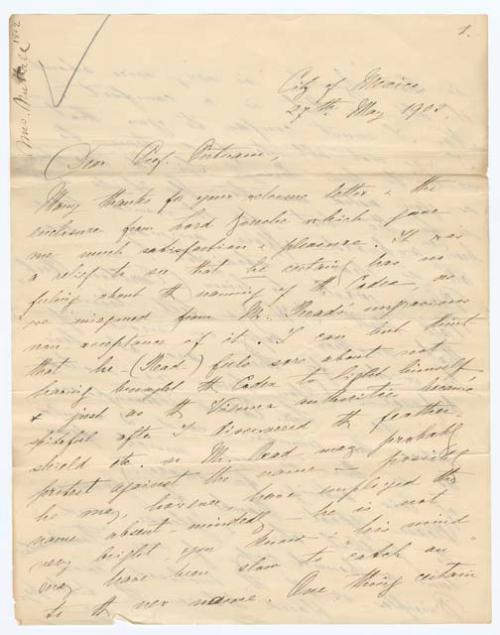 1.
Mrs. Nuttall 1902
City of Mexico
27th May 1902.
Dear Prof. Putnam,
Many thanks for your welcome letter & the
enclosure from Lord Zouche which gave
me much satisfaction & pleasure. It was
a relief to see that he certainly has no
feeling about the naming of the Codex, as
we imagined from Mr. Read's ungracious
non acceptance of it. I can but think
that he (Read) feels sore about not
having brought the Codex to light himself
& just as the Vienna authorities became
spiteful after I discovered the feather-
shield etc. so Mr. Read may probably
protest against the name — possibly
he may, however, have employed the
name absent-mindedly — he is not
very bright you know & his mind
may have been slow to catch on
to the new name. One thing certain